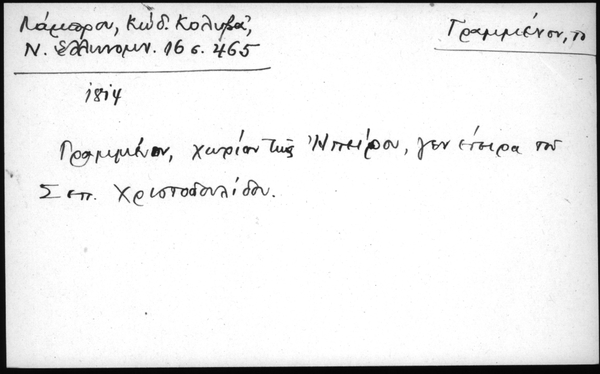 Λάμπρου, Κώδ. Κολυβᾶ,
Ν. Ἑλληνομν. 16 σ. 465
Γραμμένον, το
1814
Γραμμένον, χωρίον τῆς Ἠπείρου, γενέτειρα τοῦ
Σεπ. Χριστοδουλίδου.